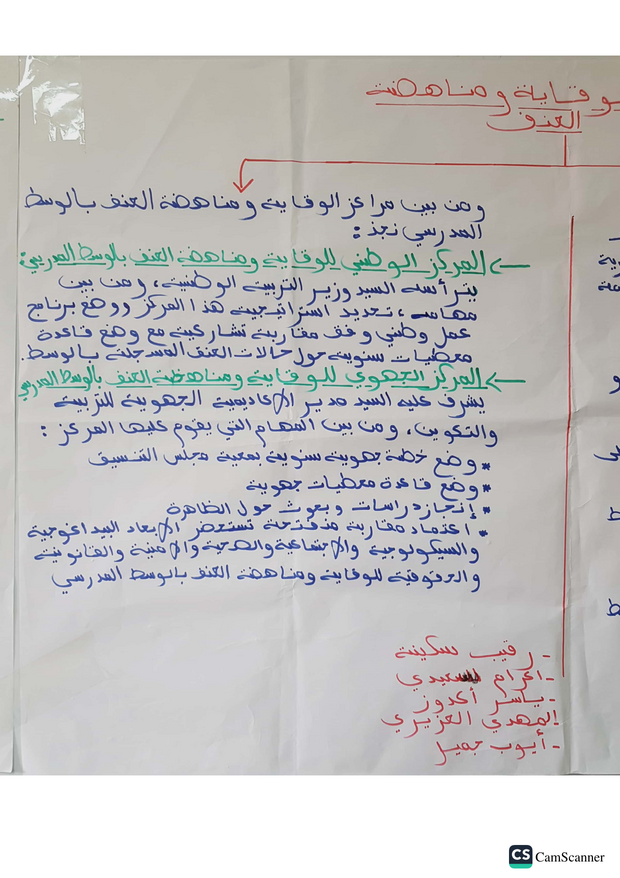 وقاية ومناهضة
العنف
ومن بين مراكز الوقاية ومناهضة العنف بالوسط
المدرسي نجد:
المركز الوطني للوقاية ومناهضة العنف بالوسط المدرسي:
يترأسه السيد وزير التربية الوطنية، ومن بين
مهامه، تحديد استراتيجية هذا المركز ووضع برنامج
عمل وطني وفق مقاربة تشاركية مع وضع قاعدة
معطيات سنوية حول حالات العنف المسجلة بالوسط.
المركز الجهوي للوقاية ومناهضة العنف بالوسط المدرسي
يشرف عليه السيد مدير الأكاديمية الجهوية للتربية
والتكوين، ومن بين المهام التي يقوم عليها المركز:
* وضع خطة جهوية سنوية بمعية مجلس التنسيق
* وضع قاعدة معطيات جهوية
* إنجاز دراسات وبحوث حول الظاهرة
* اعتماد مقاربة مندمجة تستحضر الأبعاد البيداغوجية
والسيكولوجية والاجتماعية والصحية والأمنية والقانونية
والحقوقية للوقاية ومناهضة العنف بالوسط المدرسي
- رقيب سكينة
- اكرام السعيدي
- ياسر أكدوز
المهدي العزيزي
- أيوب جميل
CS CamScanner